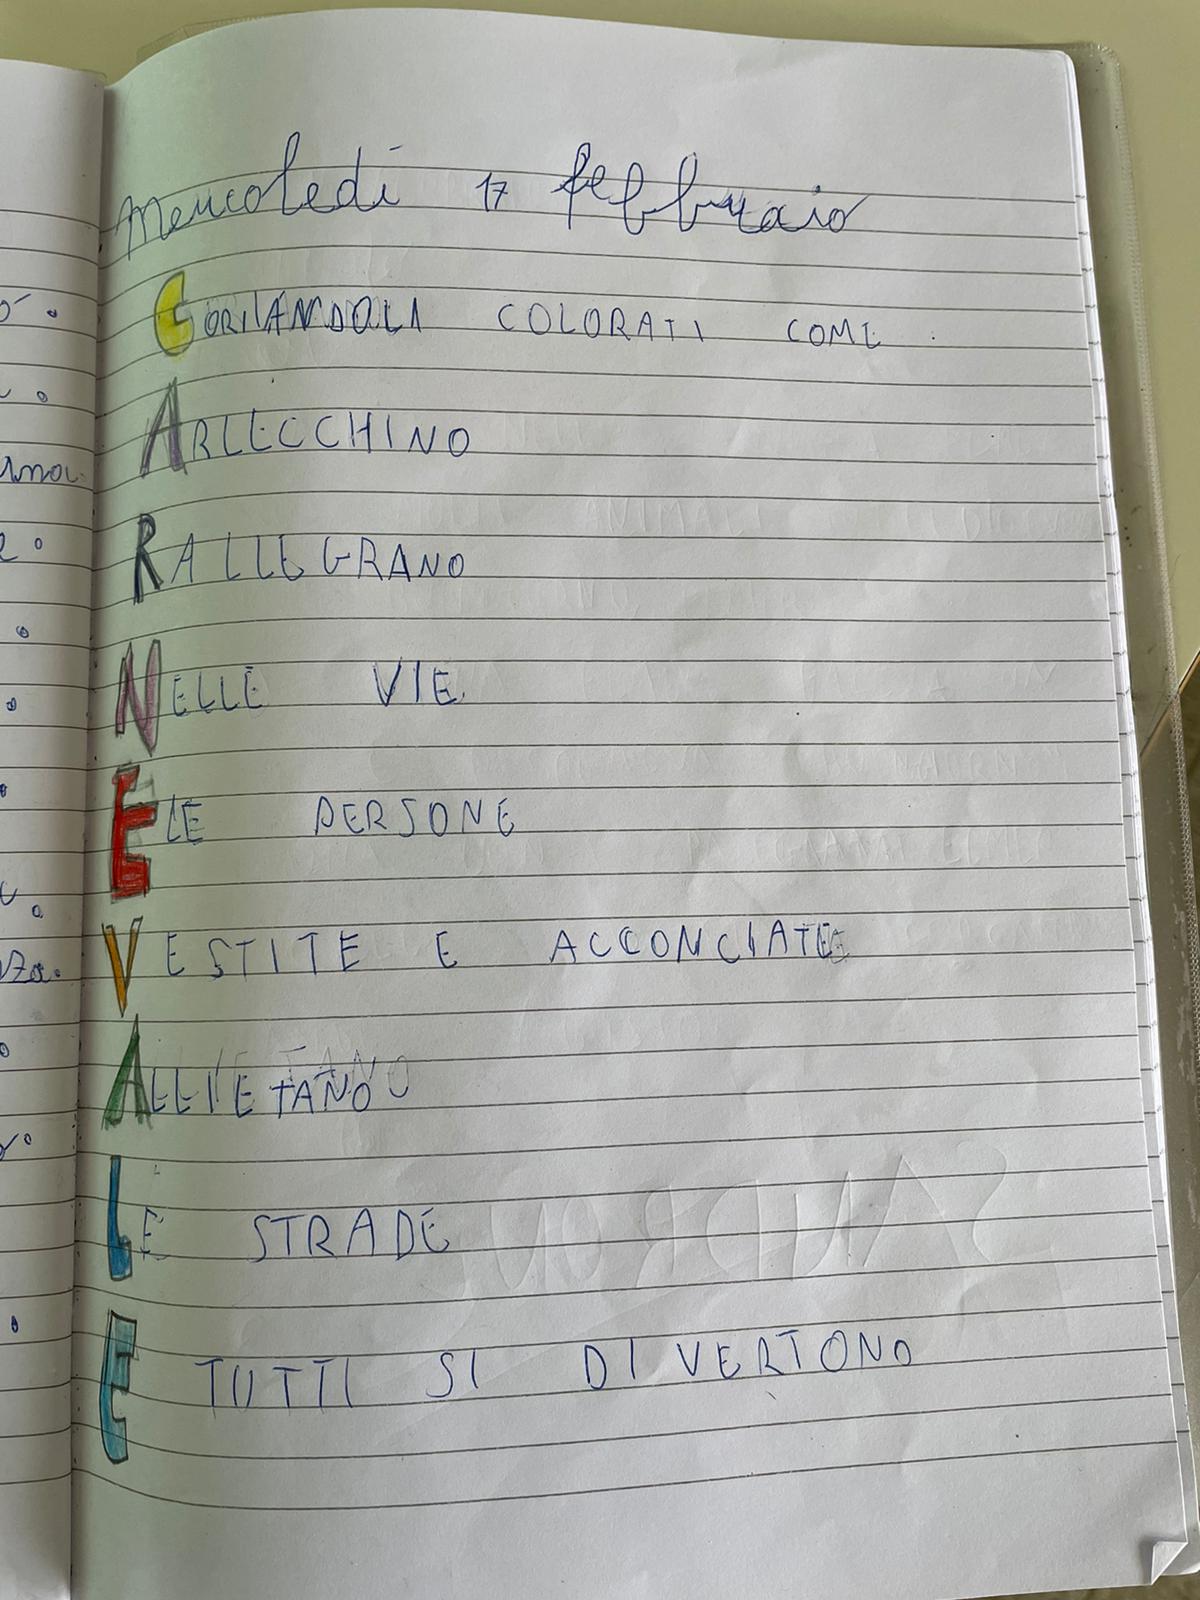 Mercoledì 17 febbraio
CORIANDOLI COLORATI COME
ARLECCHINO
RALLEGRANO
NELLE VIE
E LE PERSONE
VESTITE E ACCONCIATE
ALLIETANO
LE STRADE
E TUTTI SI DIVERTONO